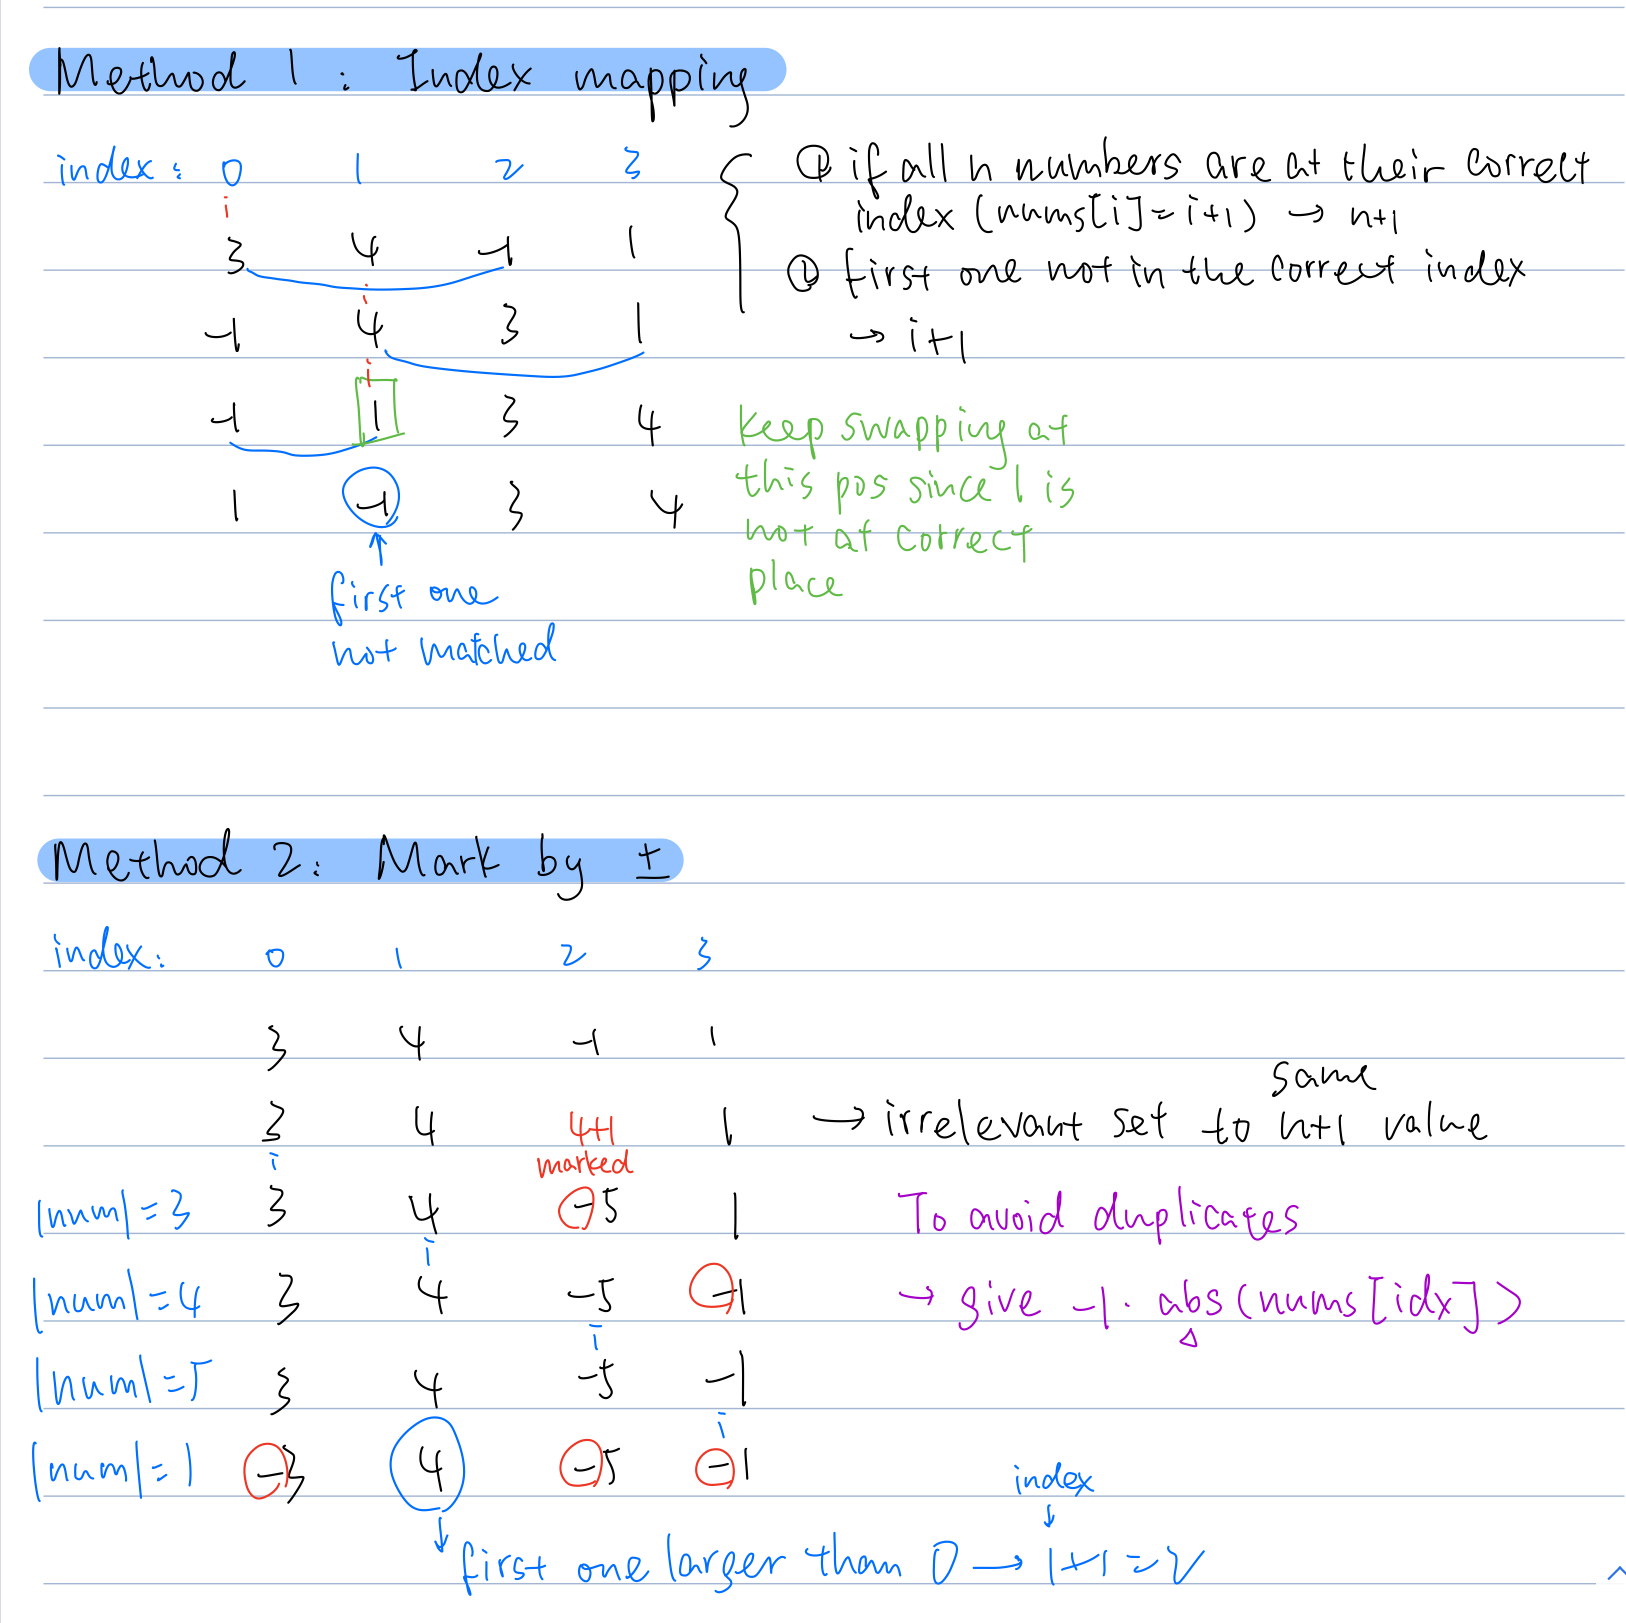 Method 1 : Index mapping
index : 0 1 2 3
i
3 4 -1 1
i
-1 4 3 1
i
-1 1 3 4
1 -1 3 4
first one
not matched
① if all n numbers are at their correct
index (nums[i]=i+1) → n+1
② first one not in the correct index
→ i+1
keep swapping at
this pos since 1 is
not at correct
place
Method 2: Mark by ±
index: 0 1 2 3
3 4 -1 1
same
3 4 4+1 1 → irrelevant set to n+1 value
i marked
|num|=3 3 4 -5 1 To avoid duplicates
i
|num|=4 3 4 -5 -1 → give -1· abs(nums[idx])
i
|num|=5 3 4 -5 -1
i
|num|=1 -3 4 -5 -1
index
↓ first one larger than 0 → 1+1=2